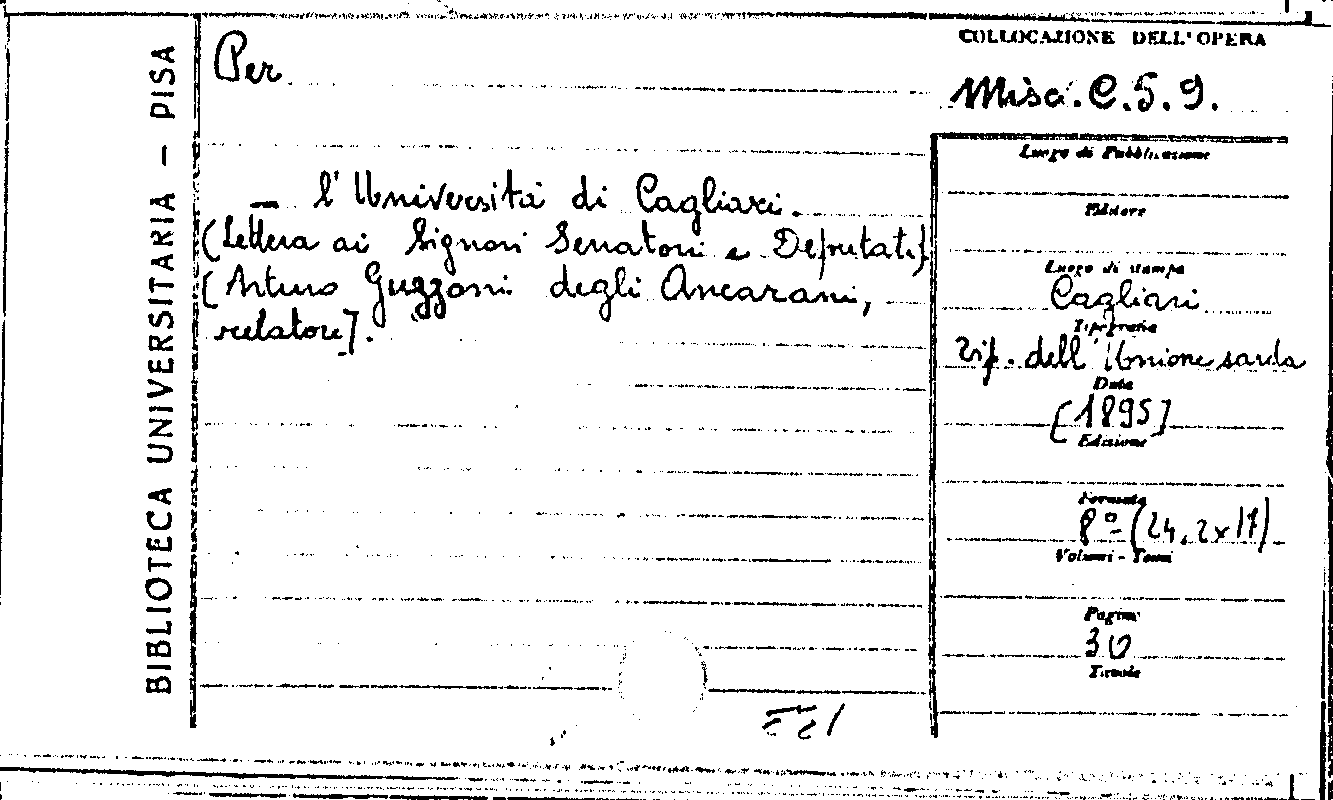 BIBLIOTECA UNIVERSITARIA — PISA
Per
— l'Università di Cagliari.
(Lettera ai Signori Senatori e Deputati)
[Arturo Guzzoni degli Ancarani,
relatore].
COLLOCAZIONE DELL'OPERA
Misc. C. 5. 9.
Luogo di Pubblicazione
Editore
Luogo di stampa
Cagliari
Tipografia
Tip. dell'Unione sarda
Data
[1895]
Edizione
Formato
8º (24,2x17)
Volumi - Tomi
Pagine
30